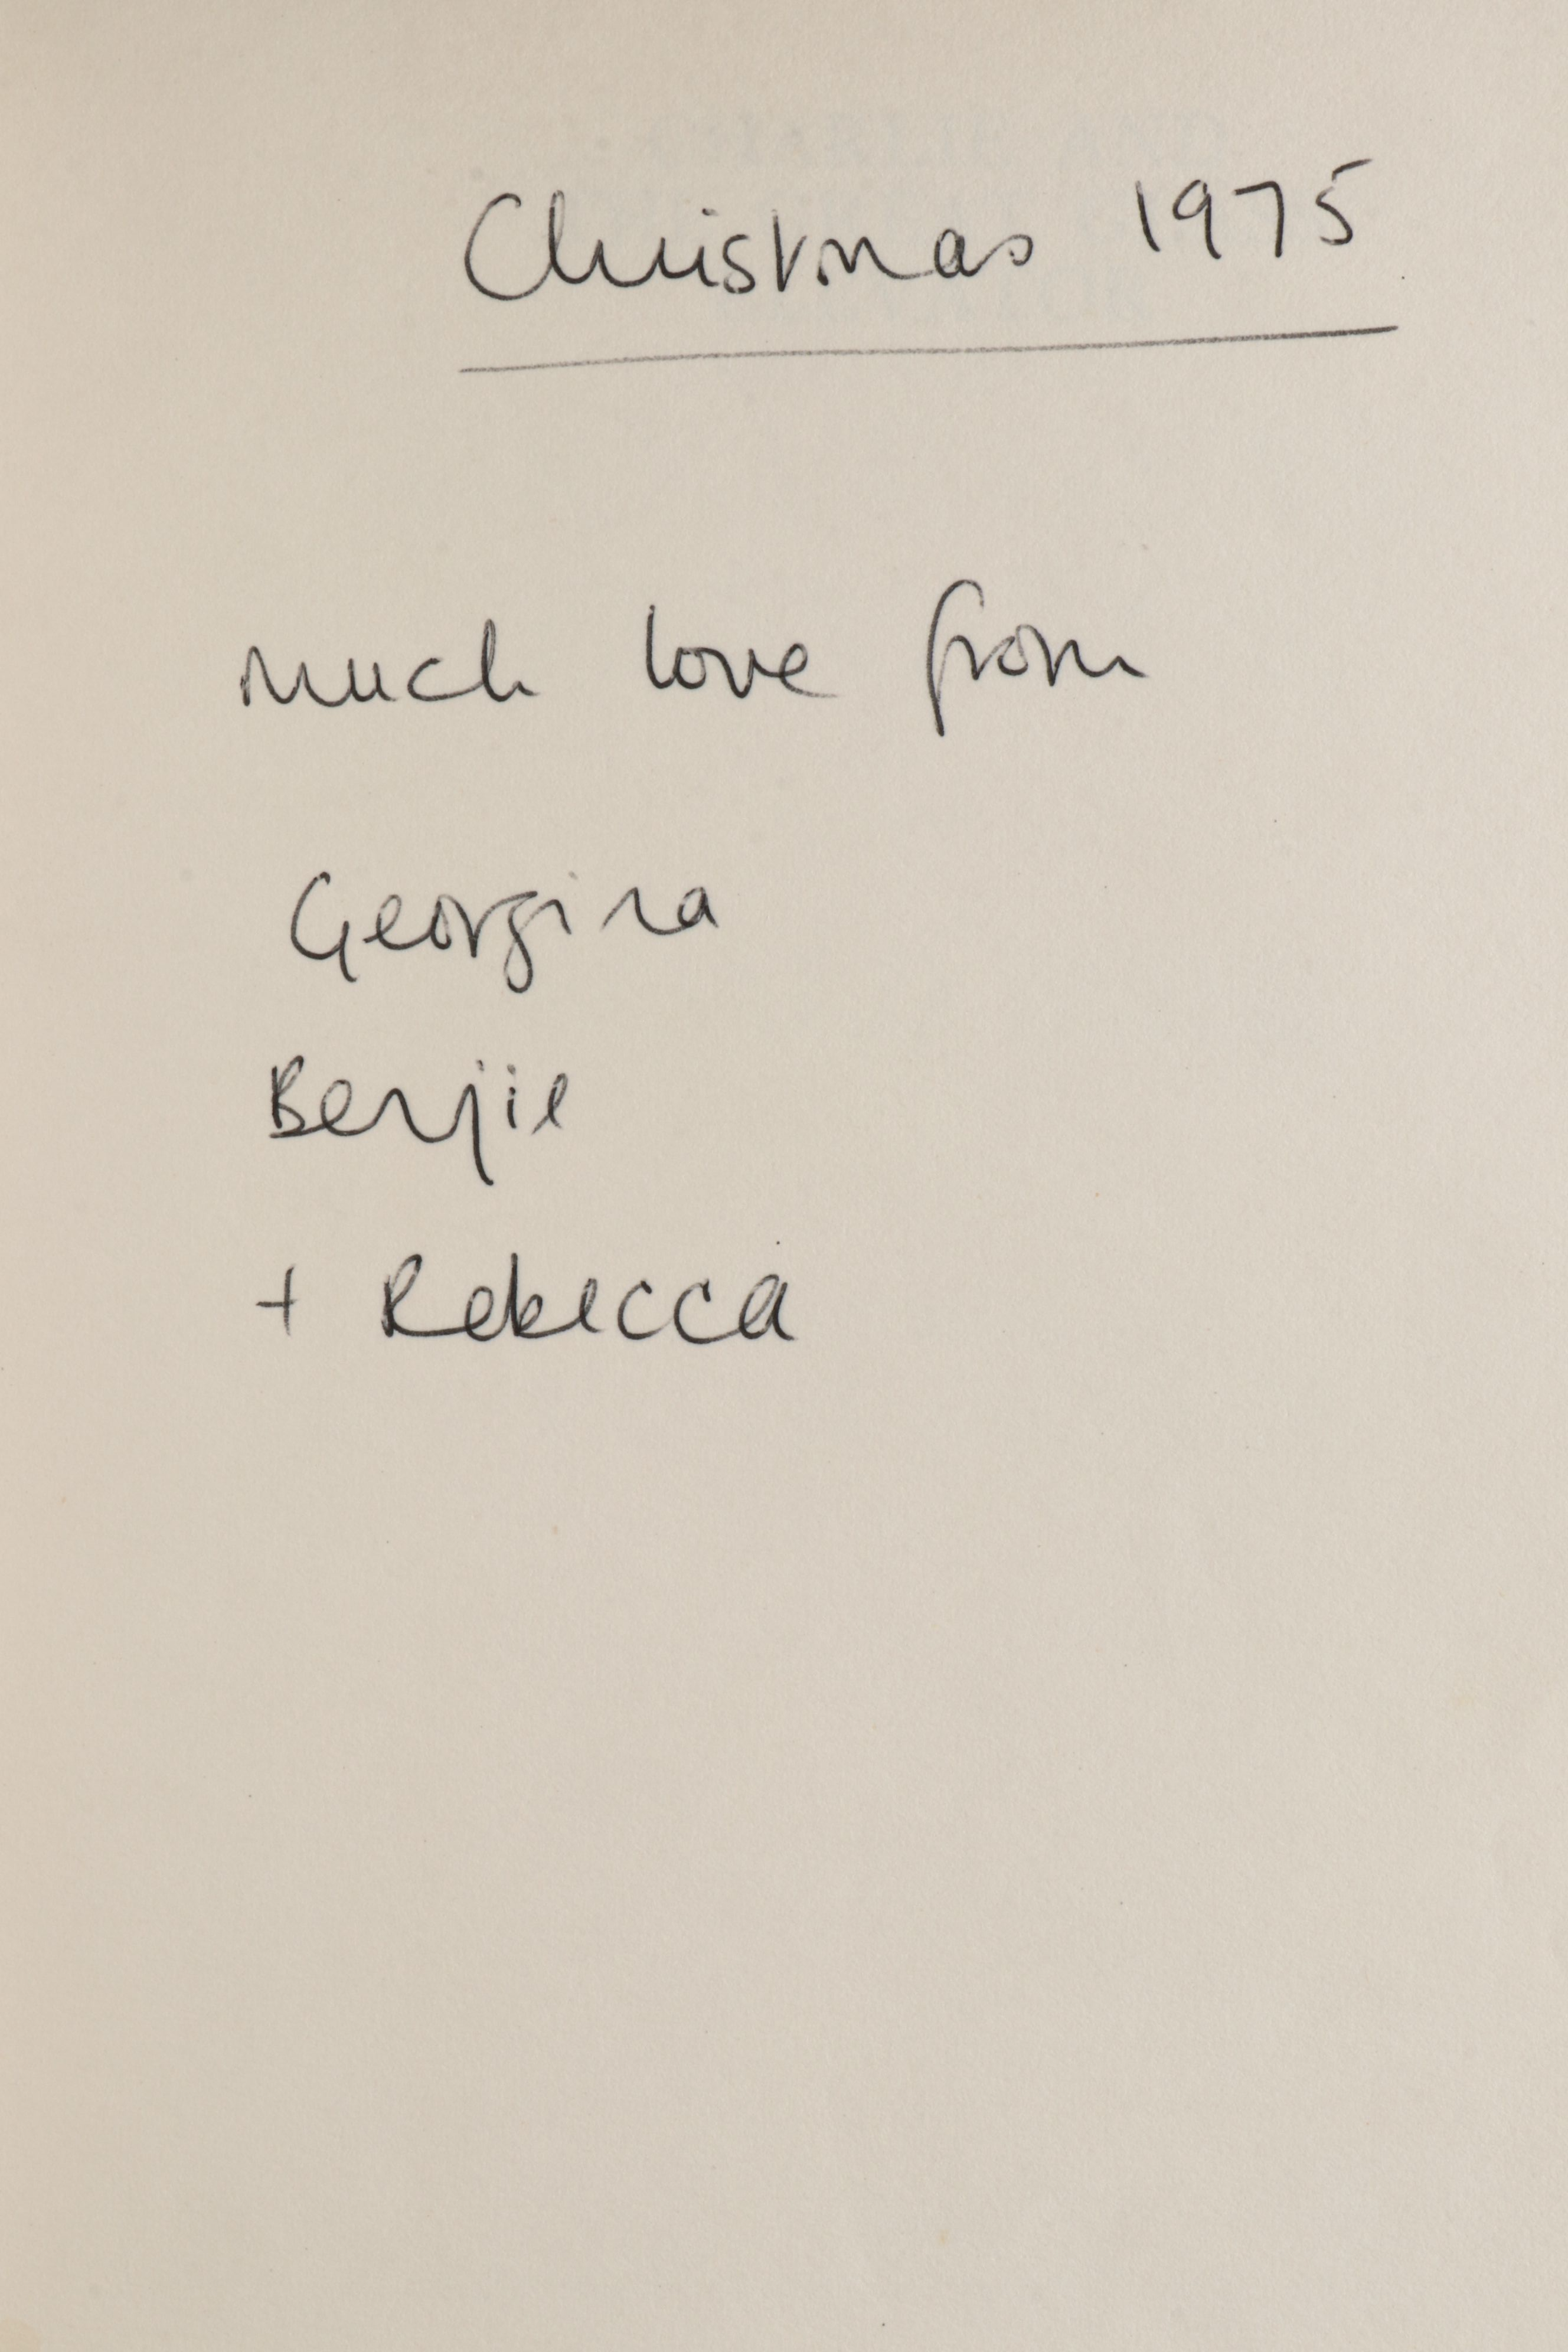 Christmas 1975
much love from
Georgina
Benjie
+ Rebecca